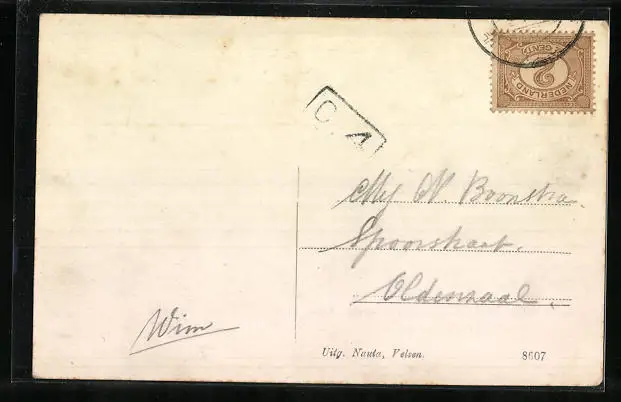 CENT
2
NEDERLAND
C. 4
Mej N. Boonstra.
Spoorstraat.
Oldenzaal.
Wim
Uitg. Nauta, Velsen.
8607